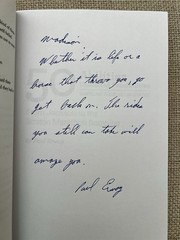 Madison,
Whether it is life or a
horse that throws you, go
get back on. The rides
you still can take will
amaze you.
Paul